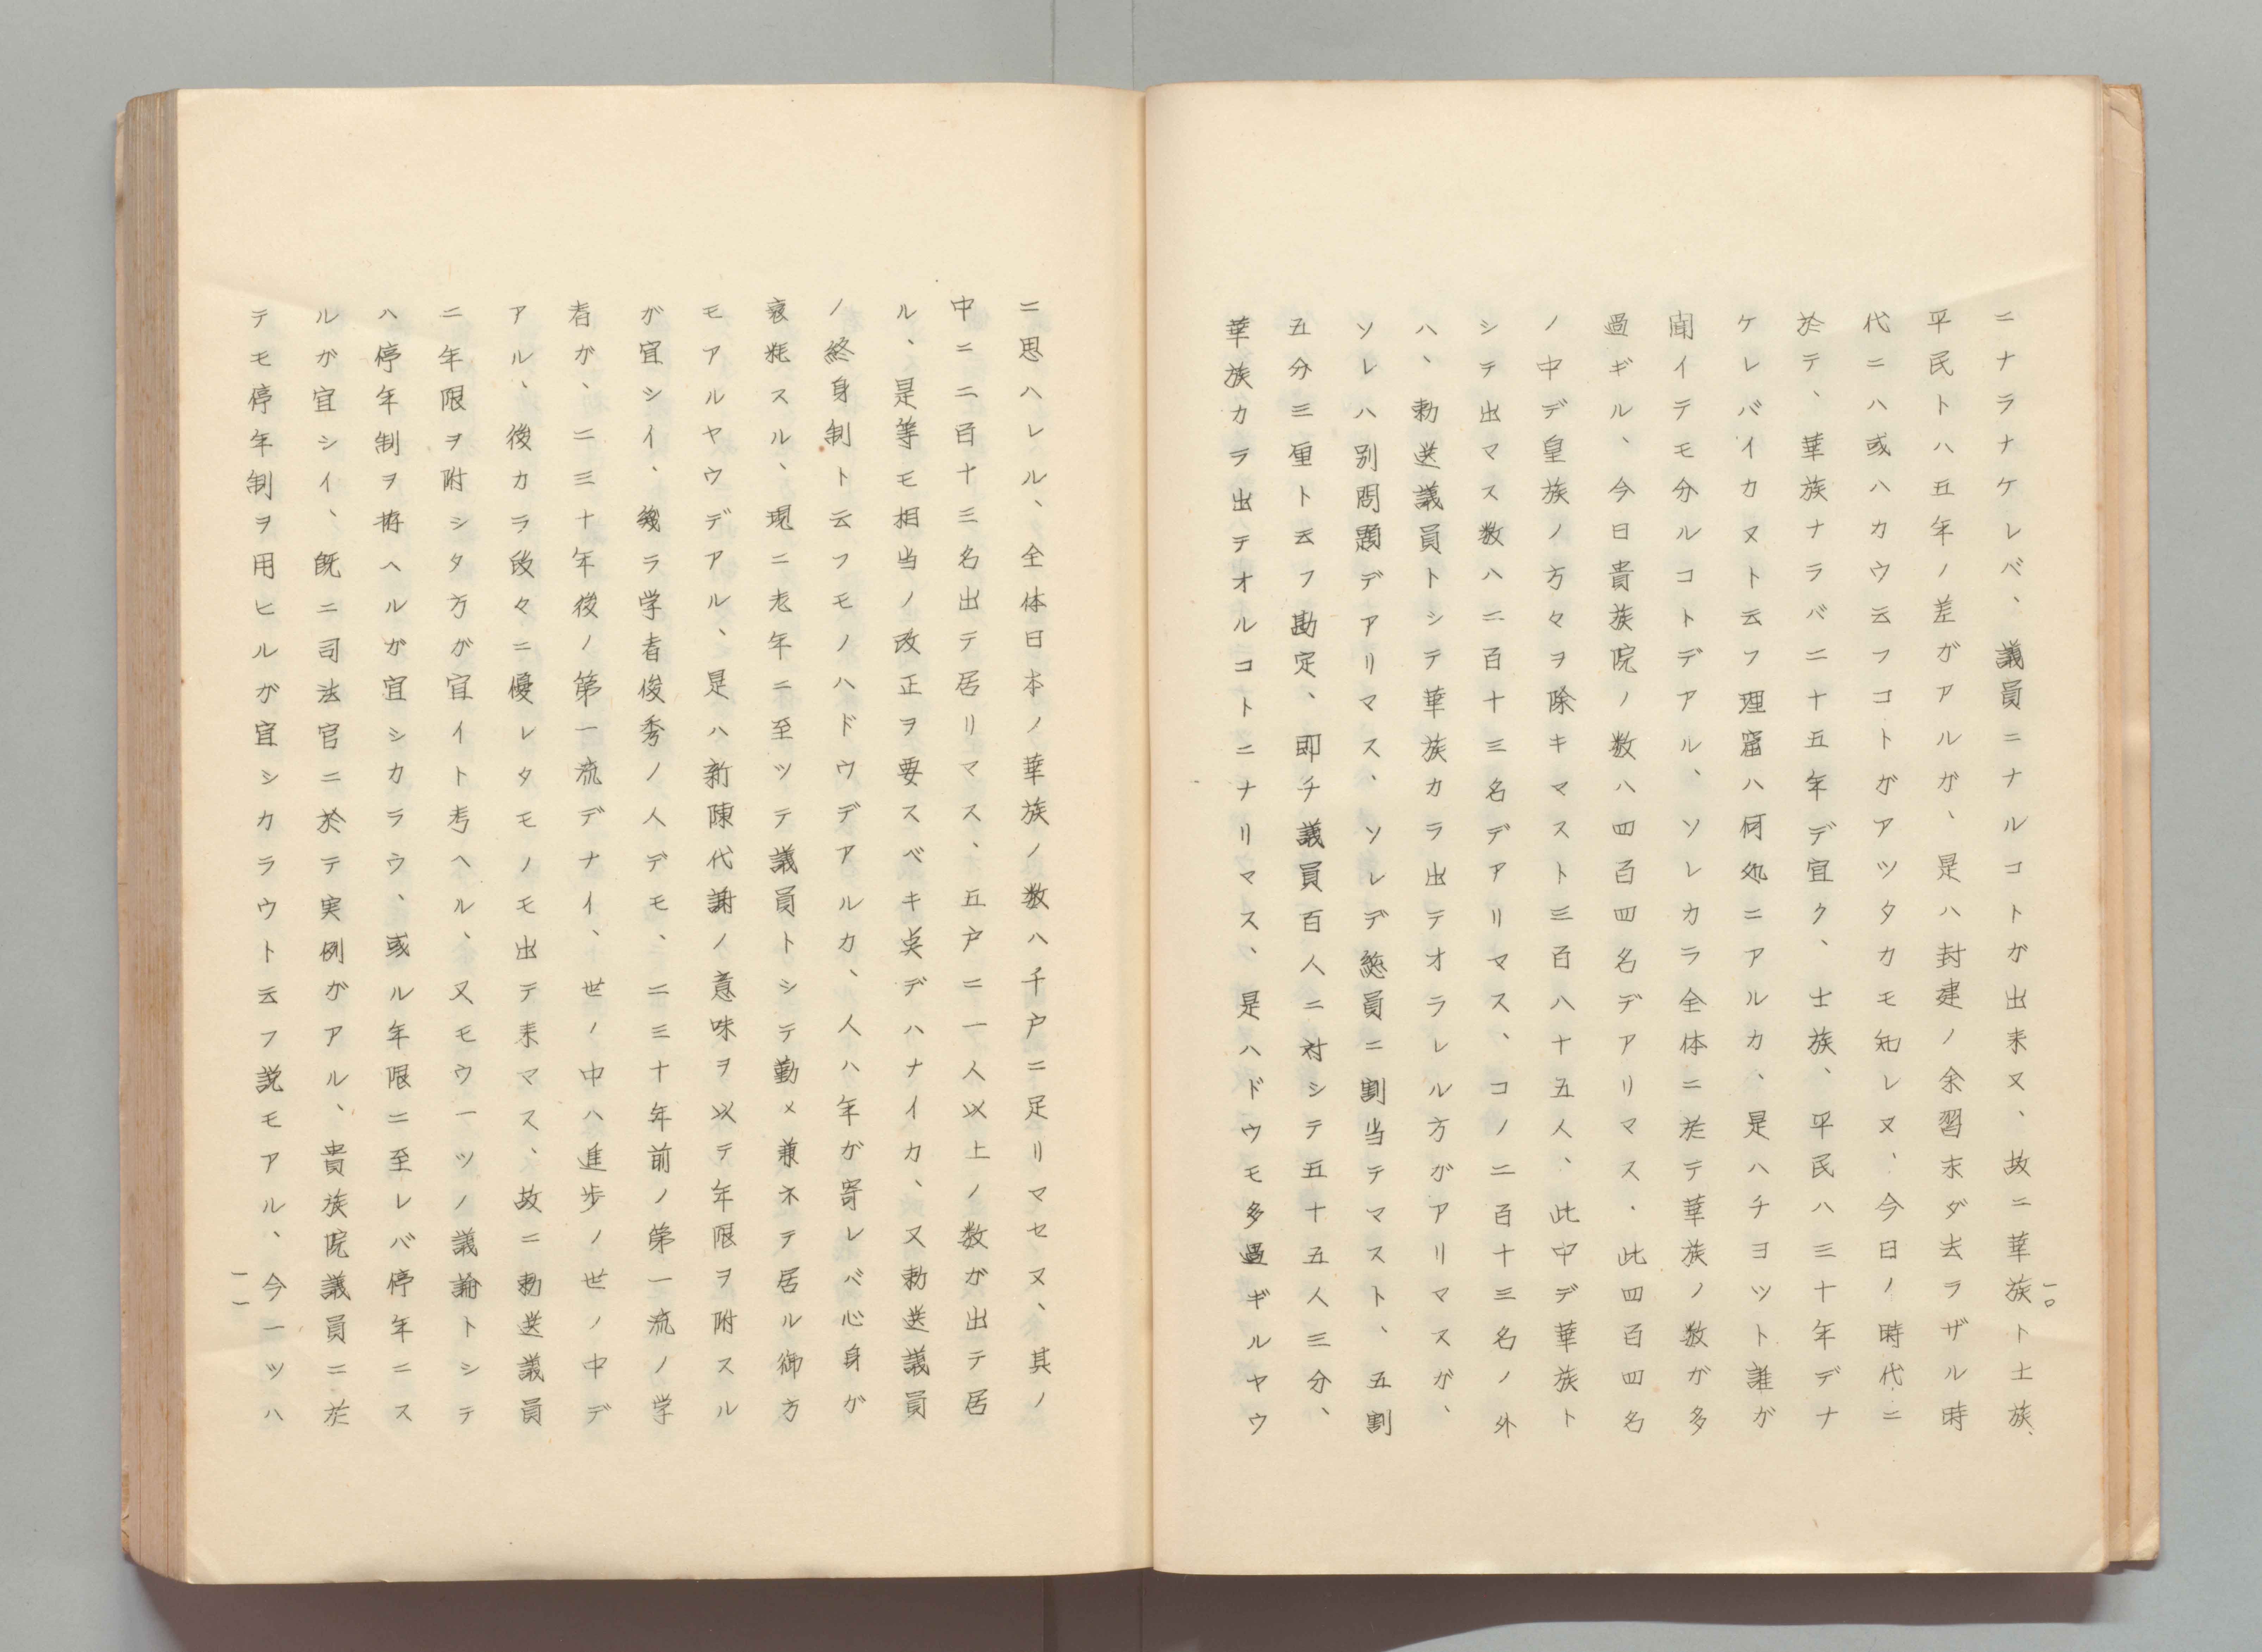 ニナラナケレバ、議員ニナルコトガ出来ヌ、故ニ華族ト士族、
平民トハ五年ノ差ガアルガ、是ハ封建ノ余習未ダ去ラザル時
代ニハ或ハカウ云フコトガアツタカモ知レヌ、今日ノ時代ニ
於テ、華族ナラバ二十五年デ宜ク、士族、平民ハ三十年デナ
ケレバイカヌト云フ理窟ハ何処ニアルカ、是ハチヨツト誰ガ
聞イテモ分ルコトデアル、ソレカラ全体ニ於テ華族ノ数ガ多
過ギル、今日貴族院ノ数ハ四百四名デアリマス、此四百四名
ノ中デ皇族ノ方々ヲ除キマスト三百八十五人、此中デ華族ト
シテ出マス数ハ二百十三名デアリマス、コノ二百十三名ノ外
ハ、勅送議員トシテ華族カラ出テオラレル方ガアリマスガ、
ソレハ別問題デアリマス、ソレデ総員ニ割当テマスト、五割
五分三厘ト云フ勘定、即チ議員百人ニ対シテ五十五人三分、
華族カラ出テオルコトニナリマス、是ハドウモ多過ギルヤウ
一〇
ニ思ハレル、全体日本ノ華族ノ数ハ千戸ニ足リマセヌ、其ノ
中ニ二百十三名出テ居リマス、五戸ニ一人以上ノ数ガ出テ居
ル、是等モ相当ノ改正ヲ要スベキ点デハナイカ、又勅送議員
ノ終身制ト云フモノハドウデアルカ、人ハ年ガ寄レバ心身ガ
衰耗スル、現ニ老年ニ至ツテ議員トシテ勤メ兼ネテ居ル御方
モアルヤウデアル、是ハ新陳代謝ノ意味ヲ以テ年限ヲ附スル
ガ宜シイ、幾ラ学者俊秀ノ人デモ、二三十年前ノ第一流ノ学
者ガ、二三十年後ノ第一流デナイ、世ノ中ハ進歩ノ世ノ中デ
アル、後カラ段々ニ優レタモノモ出テ来マス、故ニ勅送議員
ニ年限ヲ附シタ方ガ宜イト考ヘル、又モウ一ツノ議論トシテ
ハ停年制ヲ拵ヘルガ宜シカラウ、或ル年限ニ至レバ停年ニス
ルガ宜シイ、既ニ司法官ニ於テ実例ガアル、貴族院議員ニ於
テモ停年制ヲ用ヒルガ宜シカラウト云フ説モアル、今一ツハ
一一